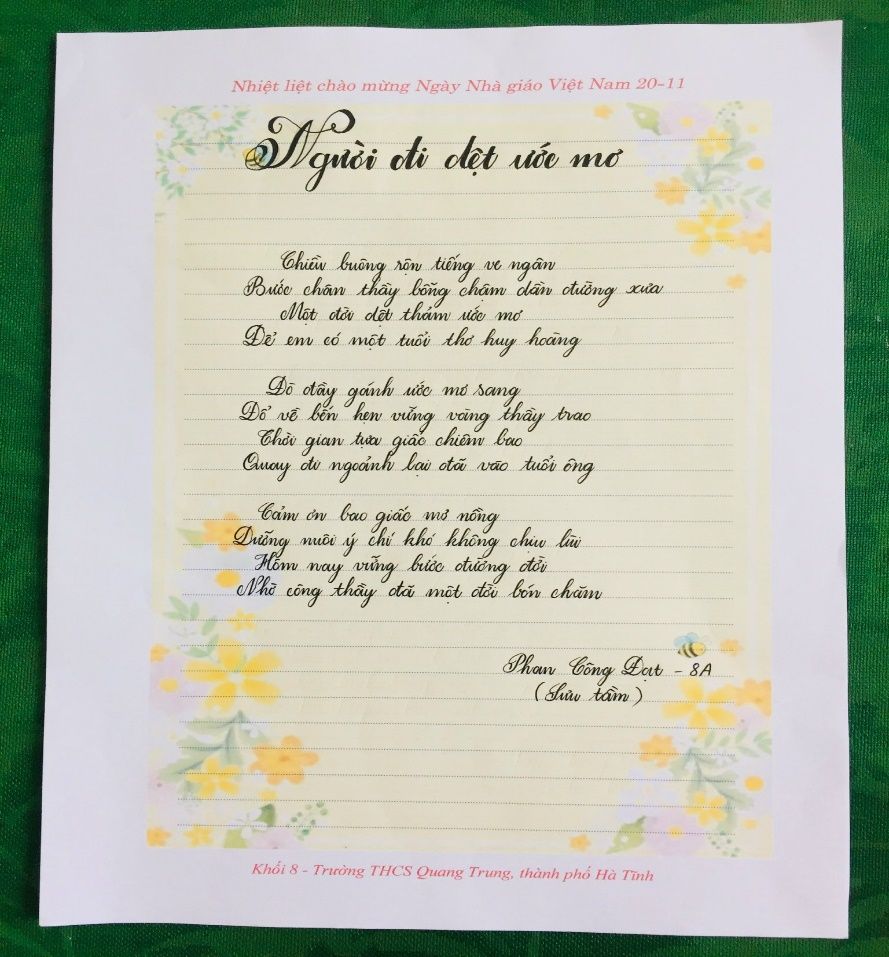 Nhiệt liệt chào mừng Ngày Nhà giáo Việt Nam 20-11
Người đi dệt ước mơ
Chiều buông rộn tiếng ve ngân
Bước chân thầy bỗng chậm dần đường xưa
Một đời dệt thảm ước mơ
Để em có một tuổi thơ huy hoàng
Đò đầy gánh ước mơ sang
Đổ về bến hẹn vững vàng thầy trao
Thời gian tựa giấc chiêm bao
Quay đi ngoảnh lại đã vào tuổi ông
Cảm ơn bao giấc mơ nồng
Dưỡng nuôi ý chí khó không chịu lùi
Hôm nay vững bước đường đời
Nhờ công thầy đã một đời bón chăm
Phan Công Đạt - 8A
(Sưu tầm)
Khối 8 - Trường THCS Quang Trung, thành phố Hà Tĩnh